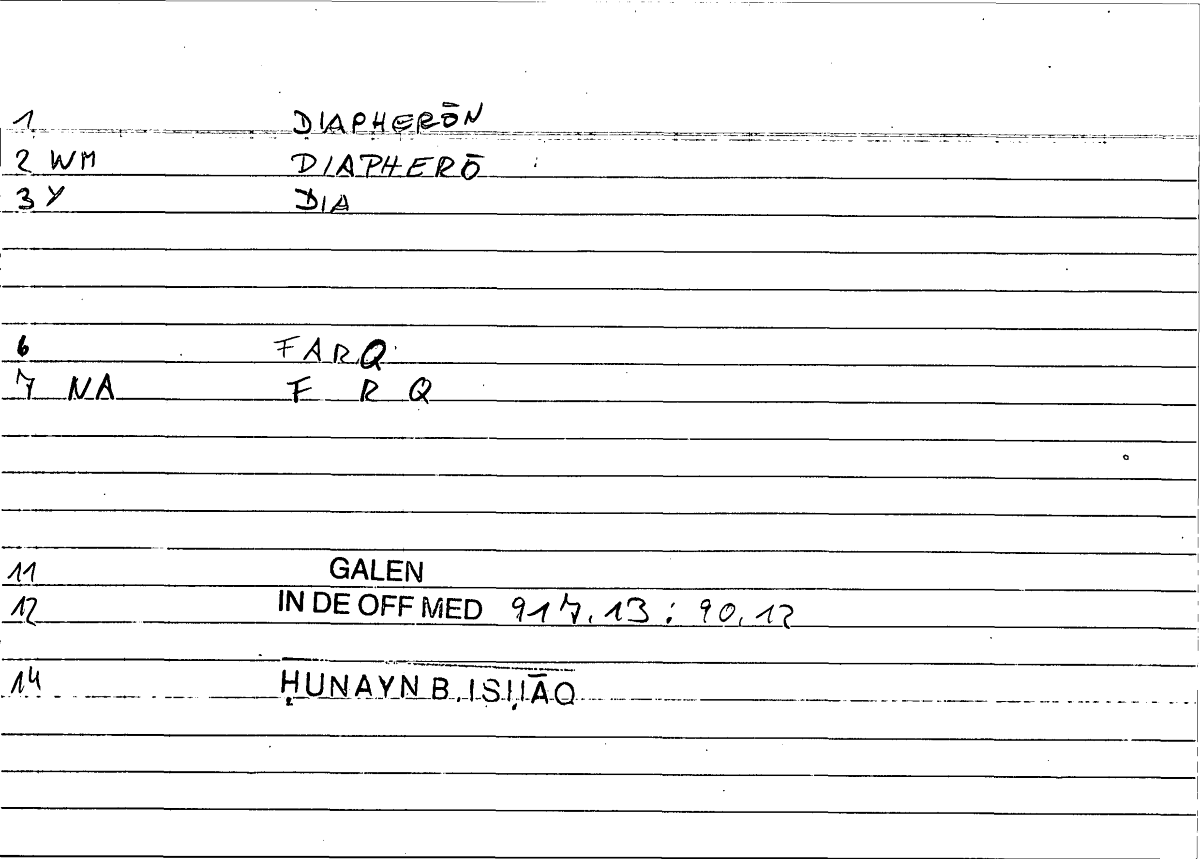 1 DIAPHERŌN
2 WM DIAPHERŌ
3 Y DIA
6 FARQ
7 NA F R Q
11 GALEN
12 IN DE OFF MED 917.13 : 90.12
14 ḤUNAYN B. ISḤĀQ